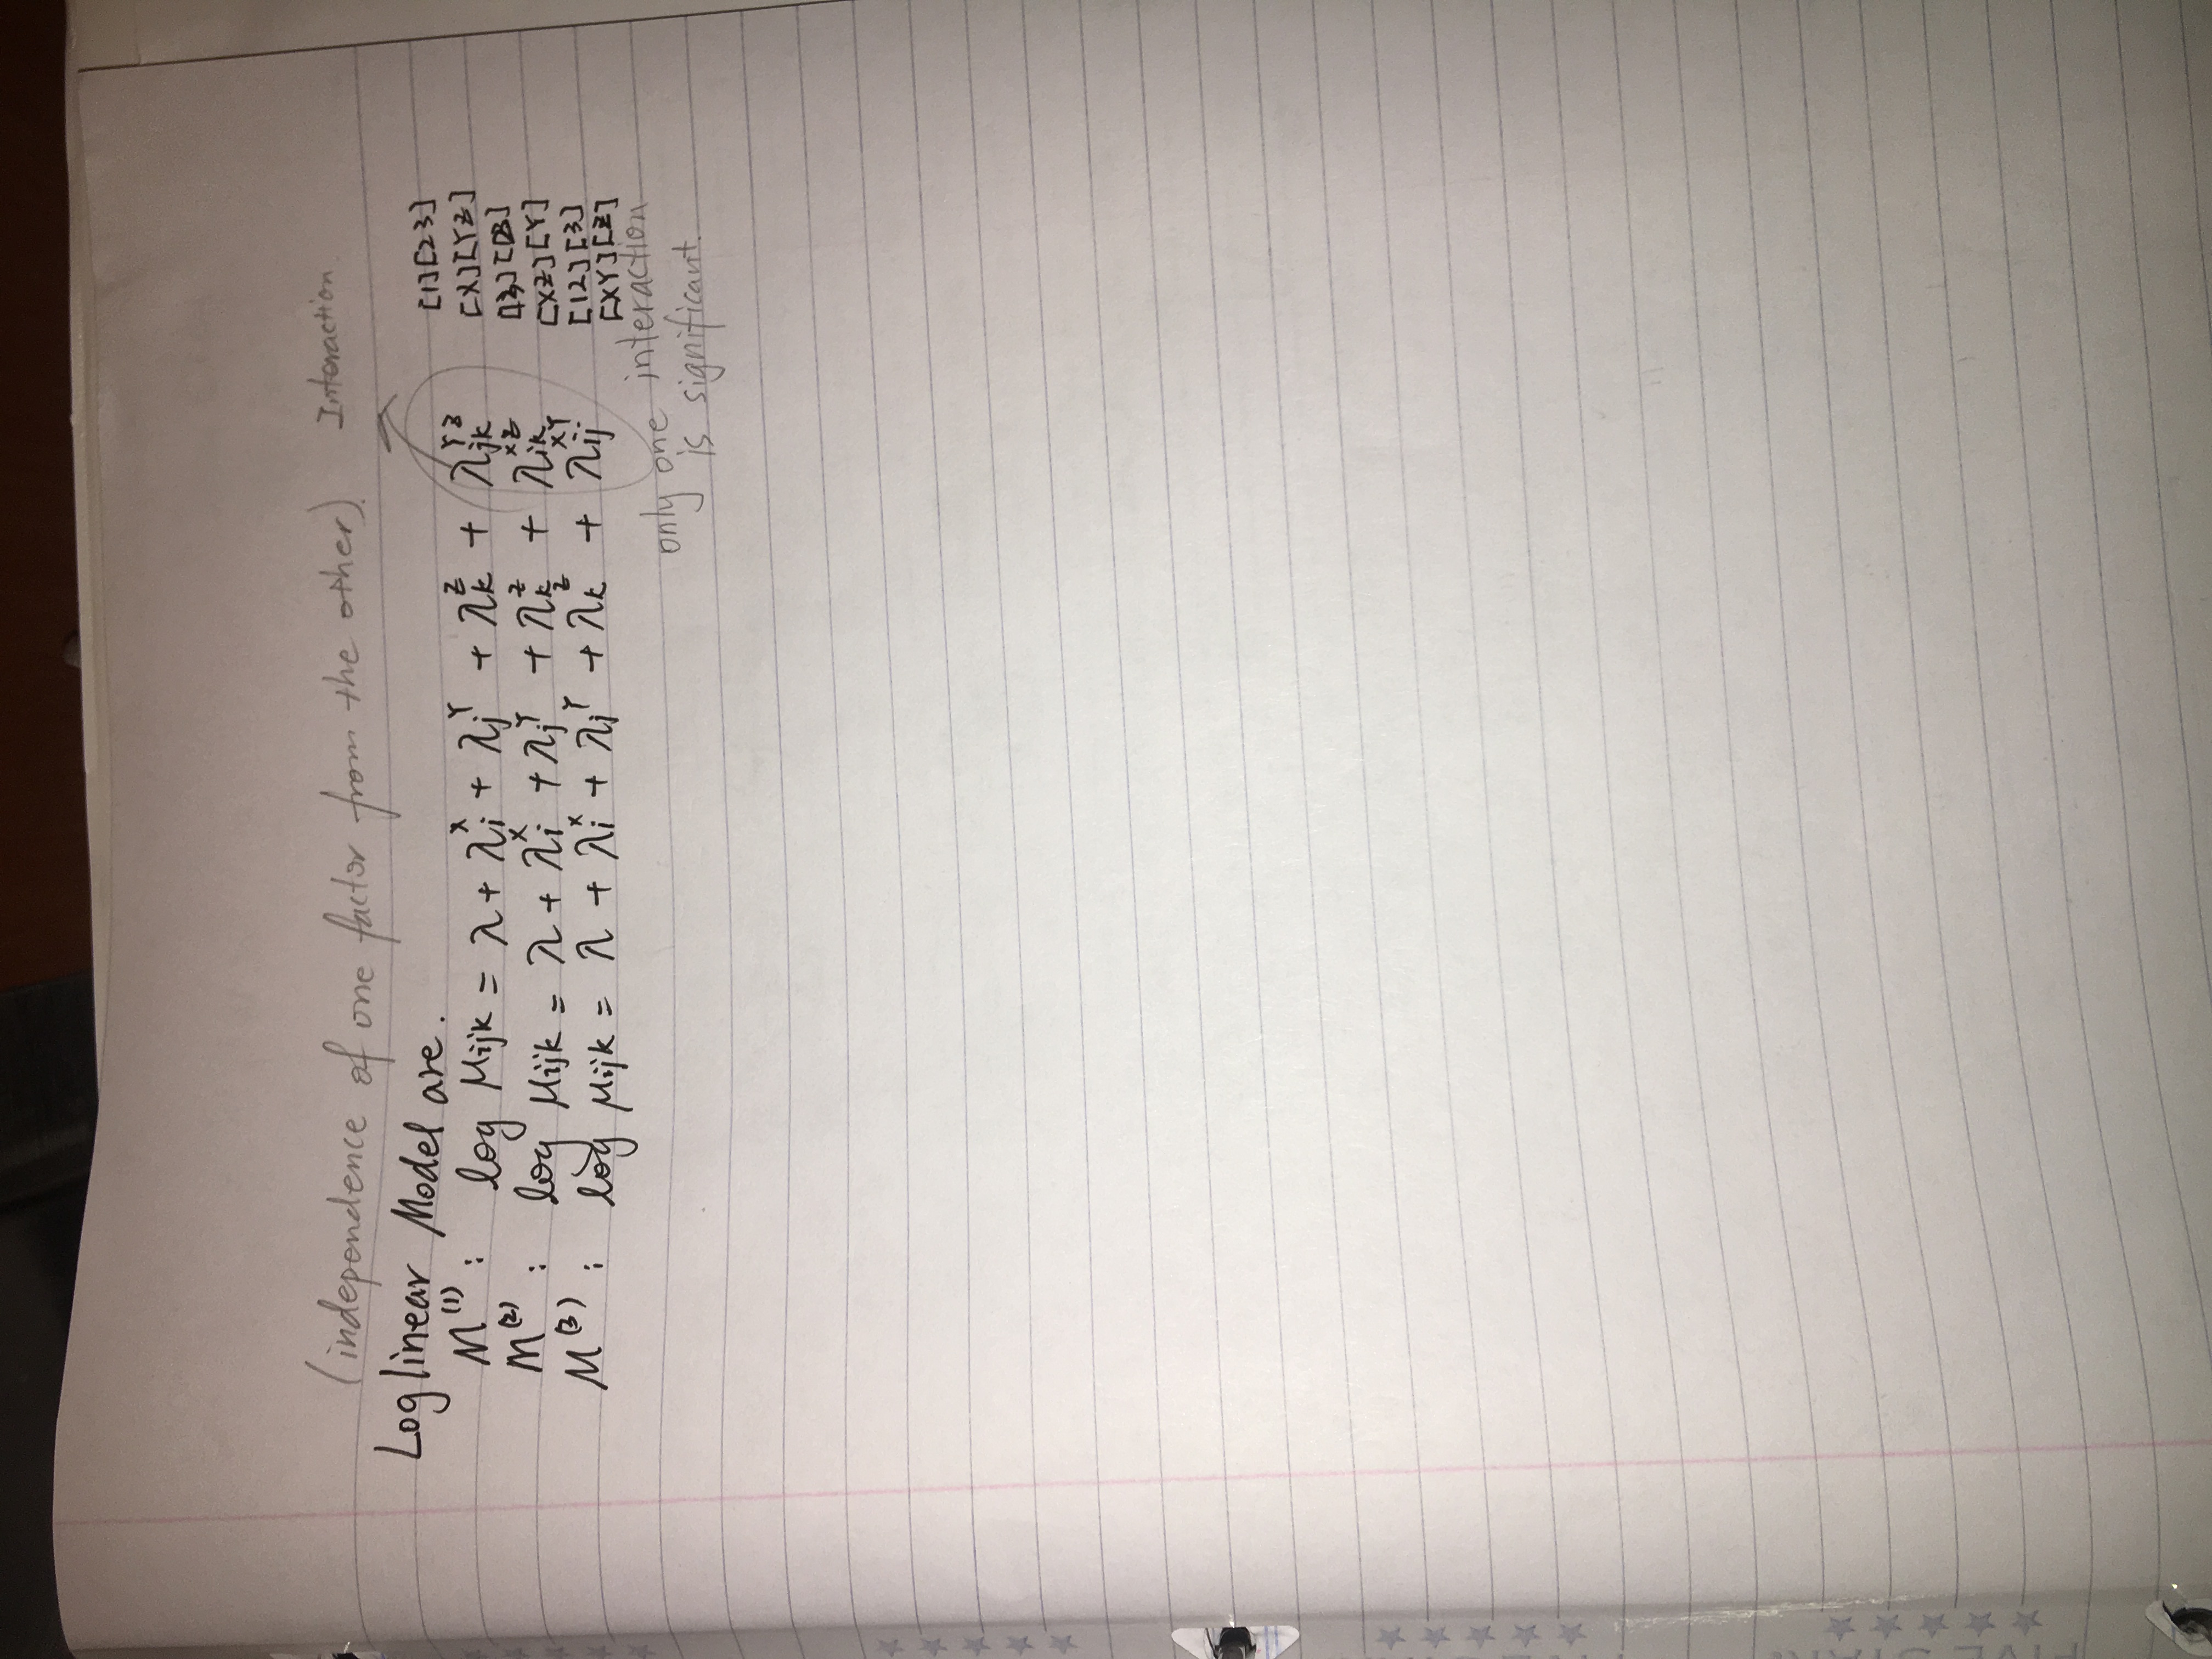 (independence of one factor from the other). Interaction
Loglinear Model are.
[1][23]
M⁽¹⁾: log μijk = λ + λᵢˣ + λⱼʸ + λₖᶻ + λⱼₖʸᶻ [X][YZ]
M⁽²⁾: log μijk = λ + λᵢˣ + λⱼʸ + λₖᶻ + λᵢₖˣᶻ
[XZ][Y]
M⁽³⁾: log μijk = λ + λᵢˣ + λⱼʸ + λₖᶻ + λᵢⱼˣʸ [12][3]
[XY][Z]
only one interaction
is significant.